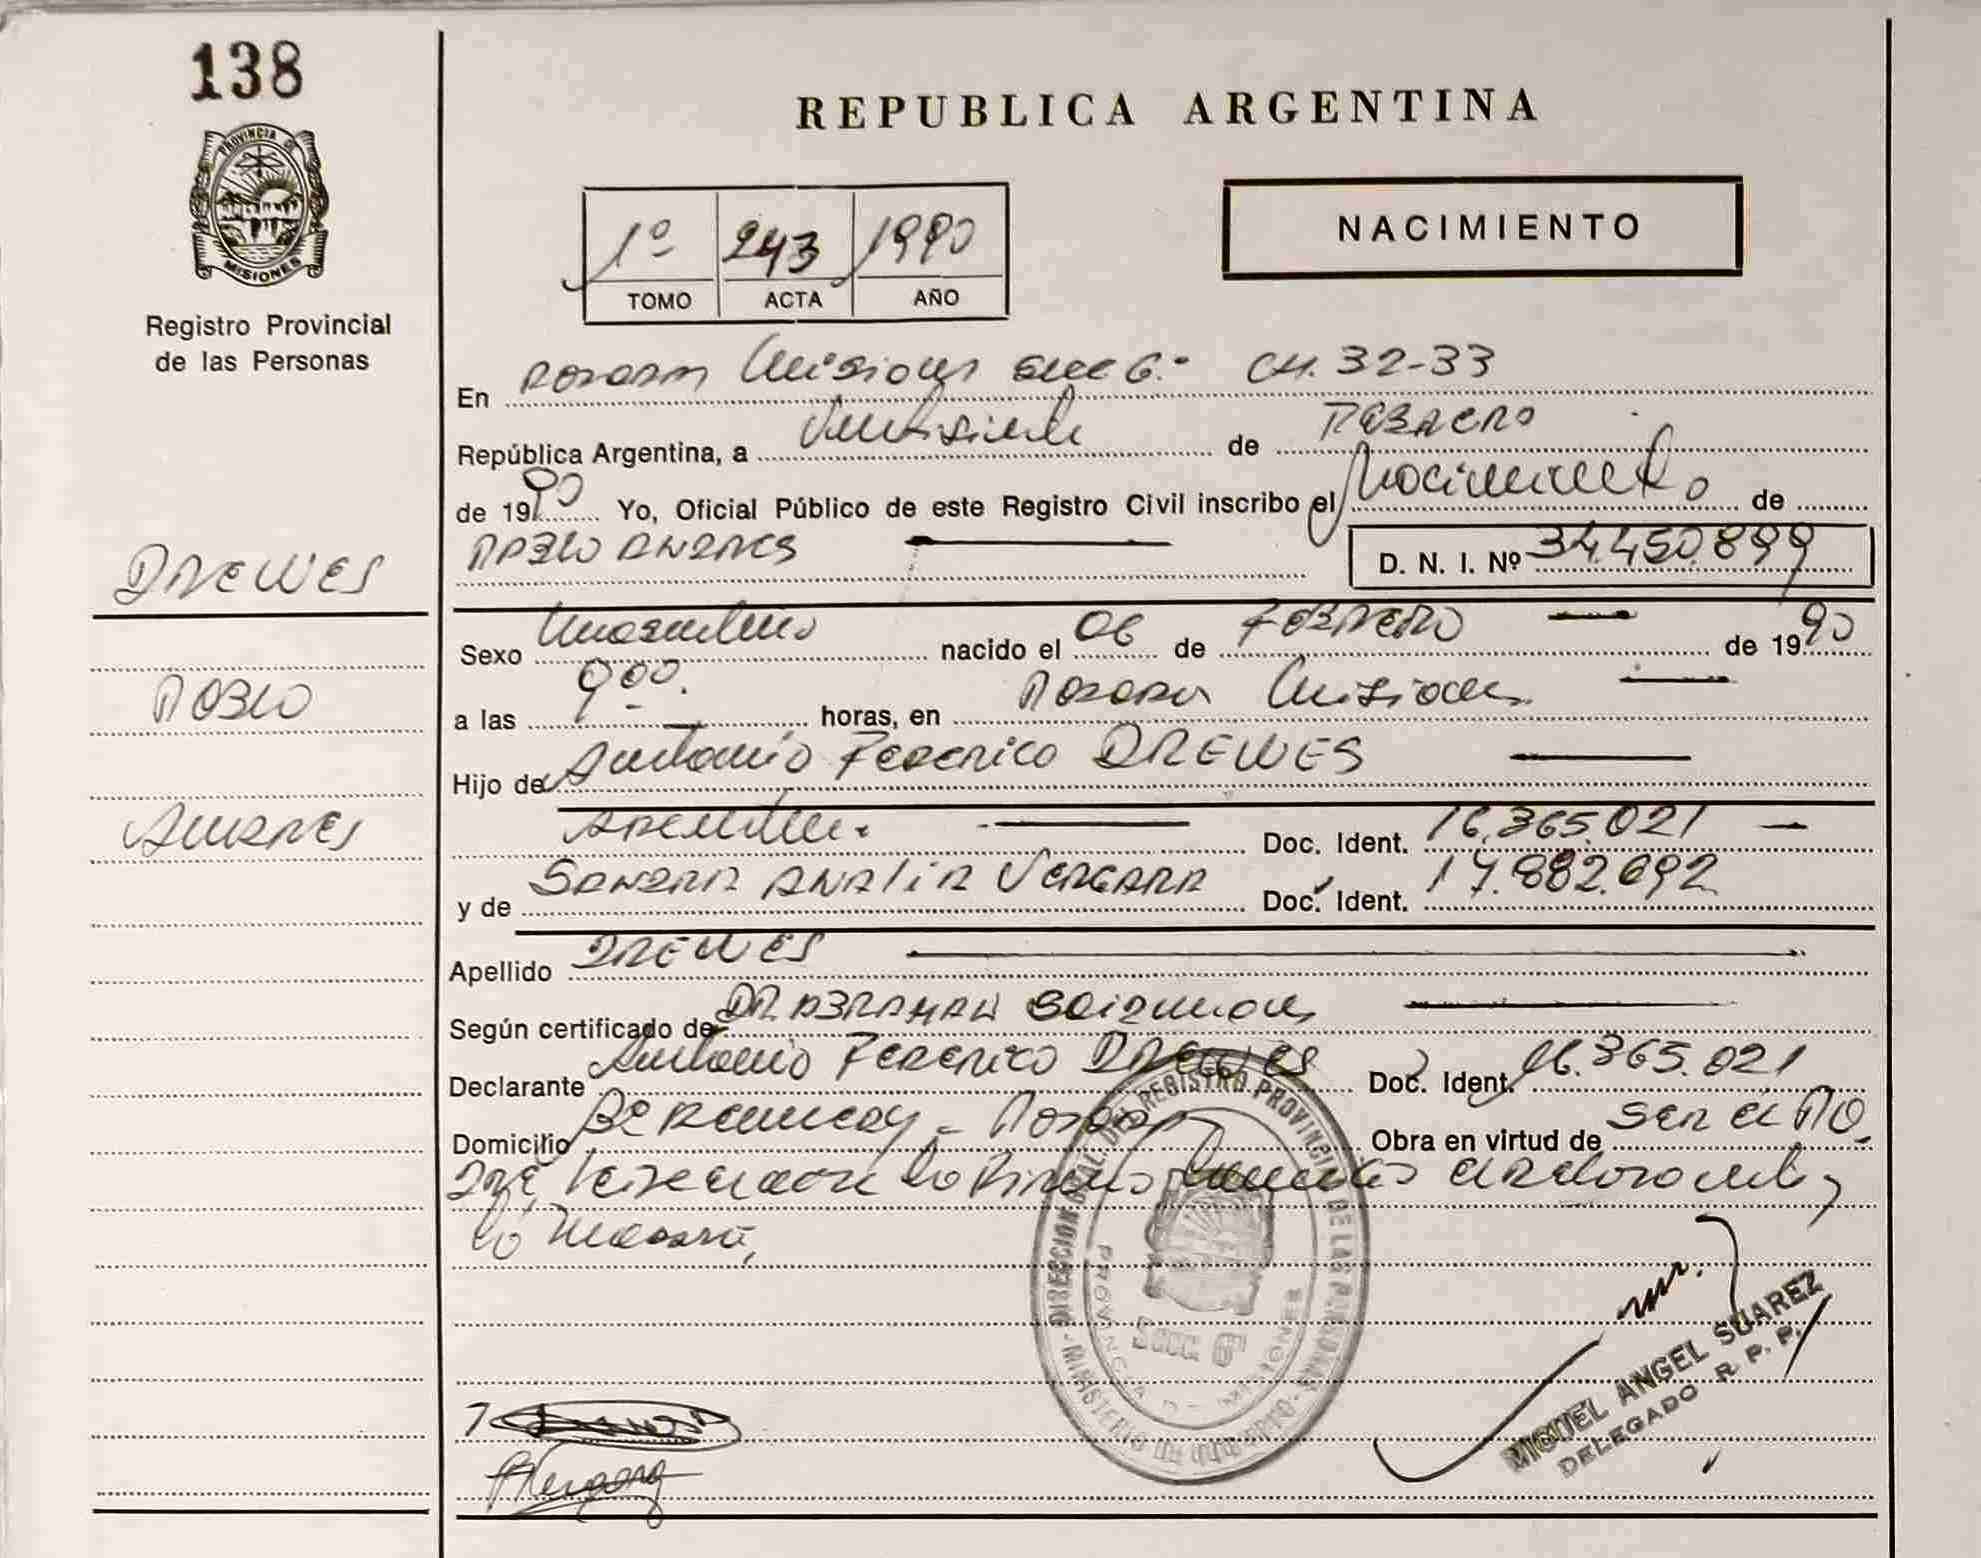 138
PROVINCIA DE
MISIONES
Registro Provincial
de las Personas
REPUBLICA ARGENTINA
NACIMIENTO
1º 243 1990
TOMO ACTA AÑO
En Posadas Misiones Secc 6.- CH. 32-33
República Argentina, a Veintisiete de FEBRERO
de 1990 Yo, Oficial Público de este Registro Civil inscribo el Nacimiento de
PABLO ANDRES D. N. I. Nº 34.450.899
DREWES
Sexo Masculino nacido el 06 de FEBRERO de 1990
PABLO
a las 9,00. horas, en Posadas Misiones
Hijo de Antonio Federico DREWES
ANDRES
Argentina. Doc. Ident. 16.365.021
y de SANDRA ANALIA VERGARA Doc. Ident. 17.882.692
Apellido DREWES
Según certificado de DR ABRAHAM
Declarante Antonio Federico DREWES Doc. Ident. 16.365.021
Domicilio Posadas Obra en virtud de SER EL PA
DRE
la madre,
DIRECCION GRAL. DEL REGISTRO PROVINCIAL DE LAS PERSONAS - MINISTERIO DE GOBIERNO -
PROVINCIA DE MISIONES
Secc 6ª
MIGUEL ANGEL SUAREZ
DELEGADO R. P. P.